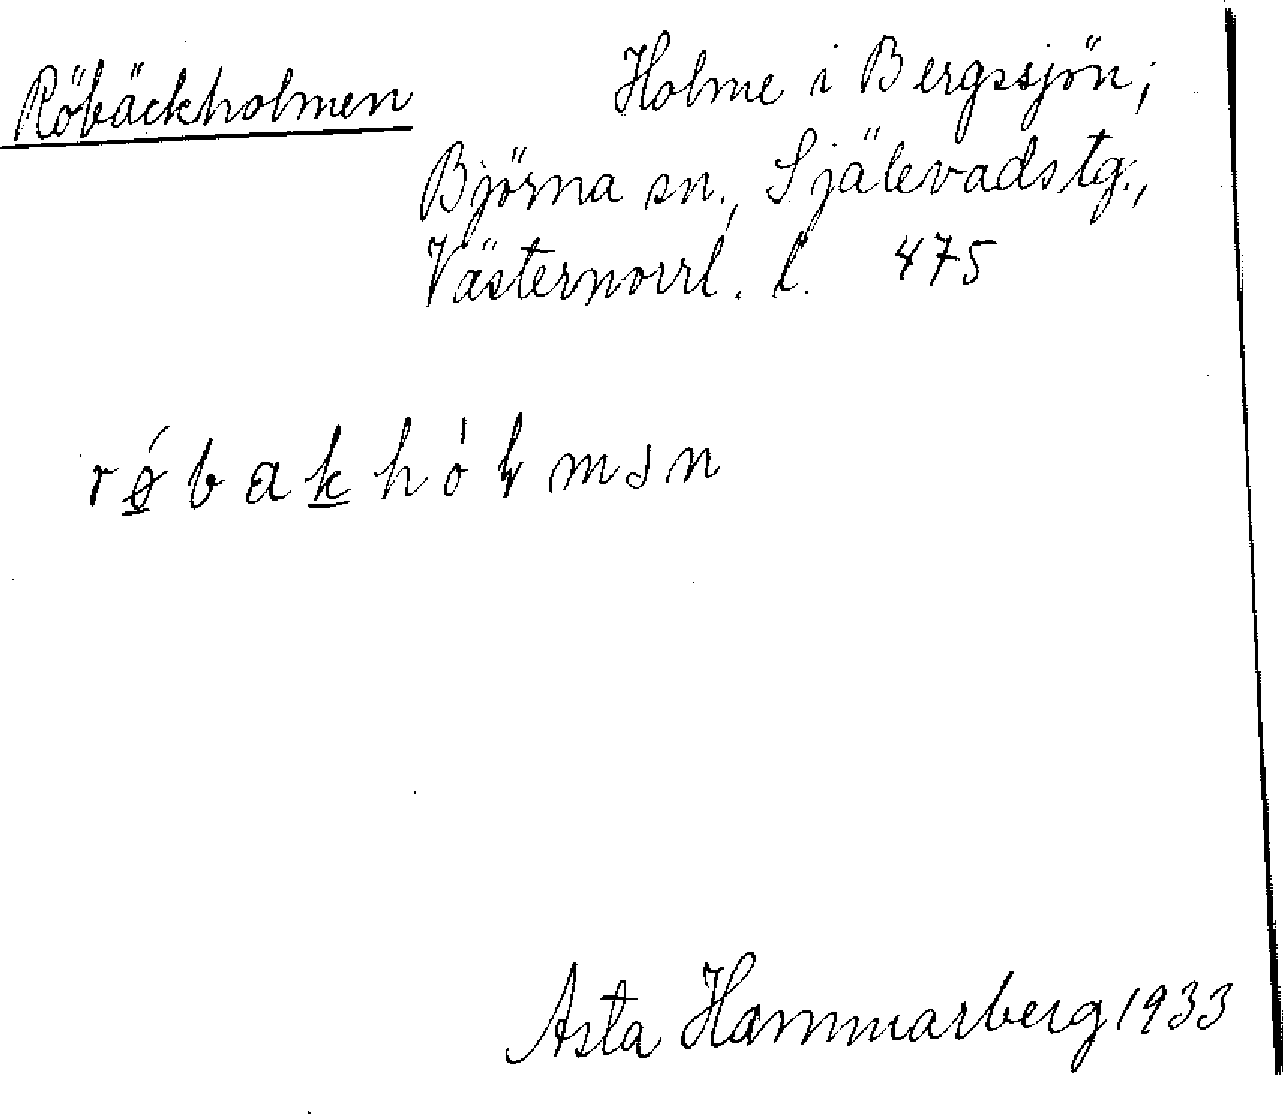 Röbäckholmen Holme i Bergssjön;
Björna sn., Själevads tg.,
Västernorrl. l. 475
rǿbakhólmən
Asta Hammarberg 1933